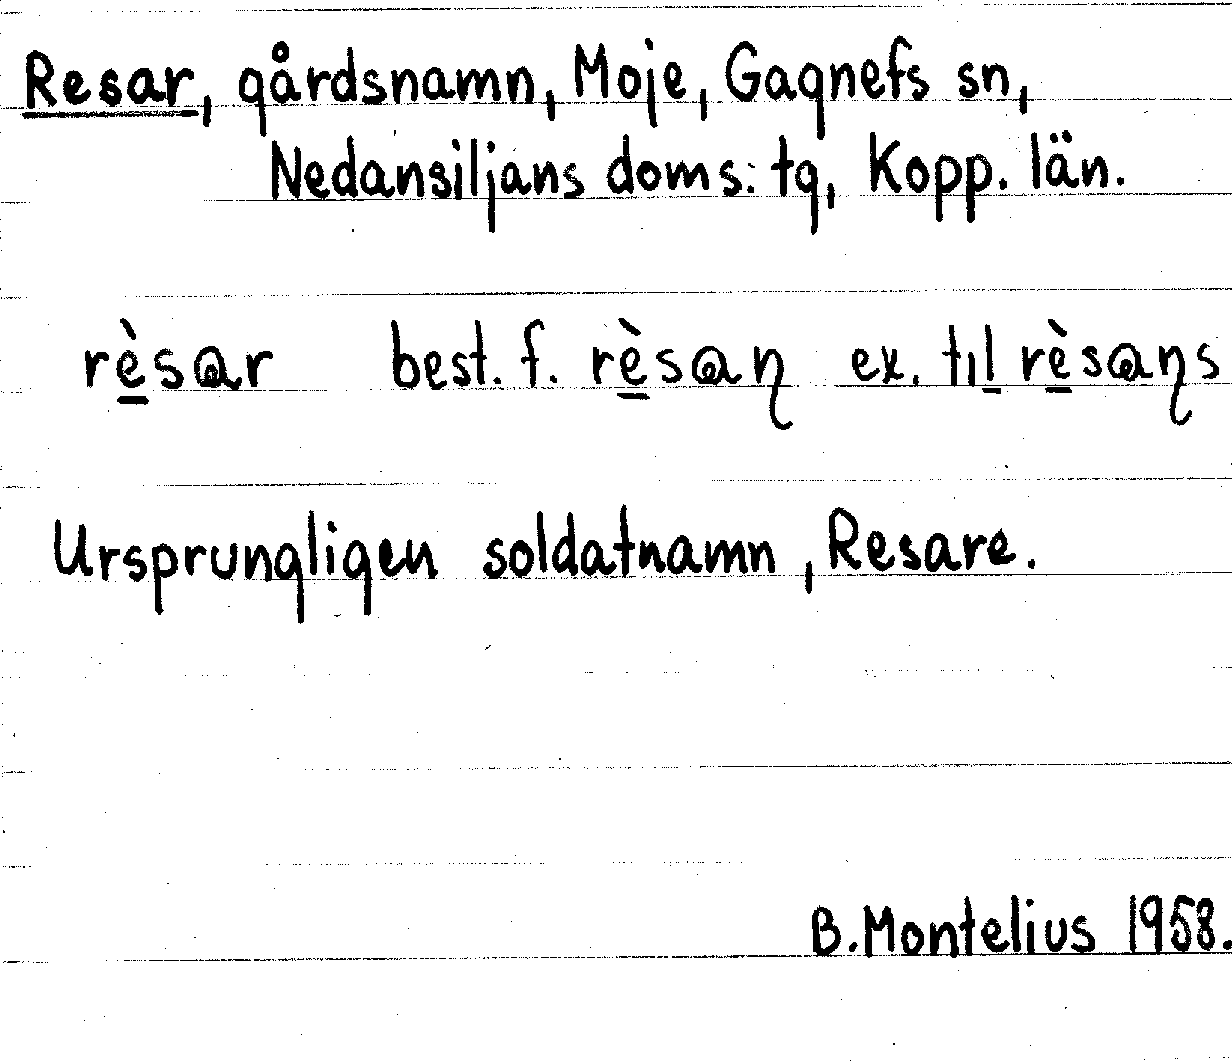 Resar, gårdsnamn, Moje, Gagnefs sn,
Nedansiljans doms: tg, Kopp. län.
rè̱sɑr best. f. rè̱sɑɳ ex. tıl̲ rè̱sɑɳs
Ursprungligen soldatnamn, Resare.
B. Montelius 1958.